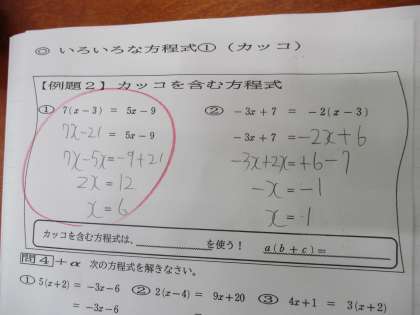 ◎ いろいろな方程式① (カッコ)
【例題2】カッコを含む方程式
① 7(x−3) = 5x−9
7x−21 = 5x−9
7x−5x=−9+21
2x=12
x=6
② −3x+7 = −2(x−3)
−3x+7 =−2x+6
−3x+2x=+6−7
−x=−1
x=1
カッコを含む方程式は、＿＿＿＿＿＿を使う! a(b+c)=＿＿＿＿＿＿
問4+α 次の方程式を解きなさい。
① 5(x+2) = −3x−6
= −3x−6
② 2(x−4) = 9x+20
=
③ 4x+1 = 3(x+2)